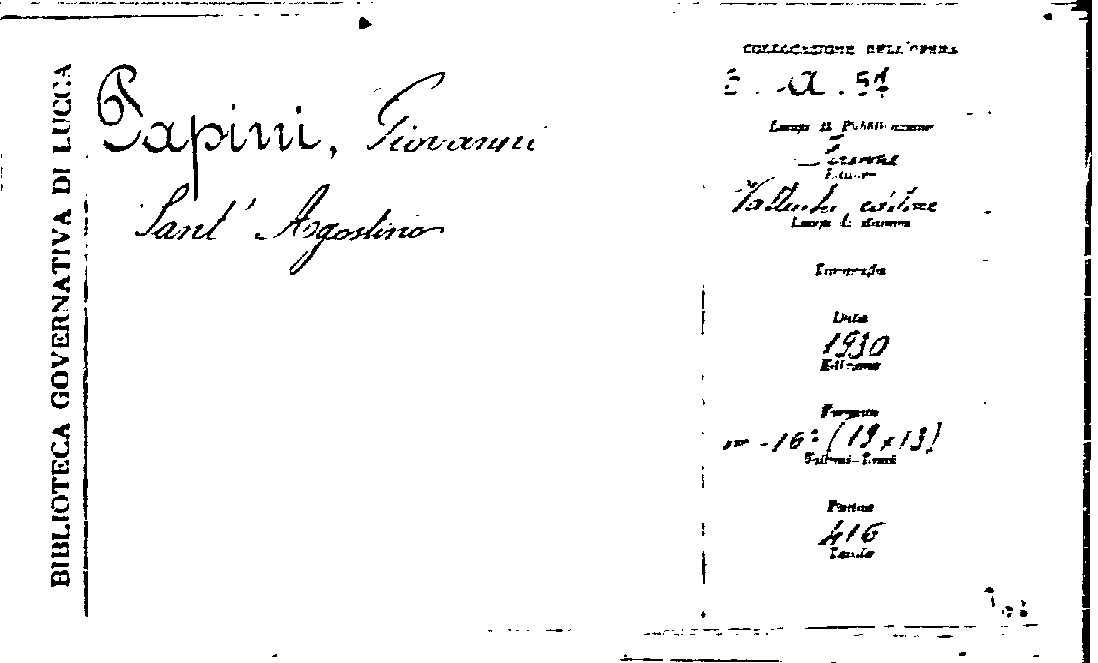 BIBLIOTECA GOVERNATIVA DI LUCCA
Papini, Giovanni
Sant' Agostino
COLLOCAZIONE DELL'OPERA
Luogo di Pubblicazione
Firenze
Editore
Vallecchi editore
Luogo di stampa
Tipografia
Data
1930
Edizione
Formato
in-16° (19x13)
Volumi-Tomi
Pagine
416
Tavole